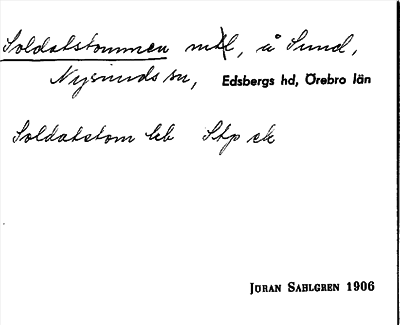 Soldatstommen mtl, å Sund,
Nysunds sn, Edsbergs hd, Örebro län
Soldatstom lıb Stp ek
JÖRAN SAHLGREN 1906